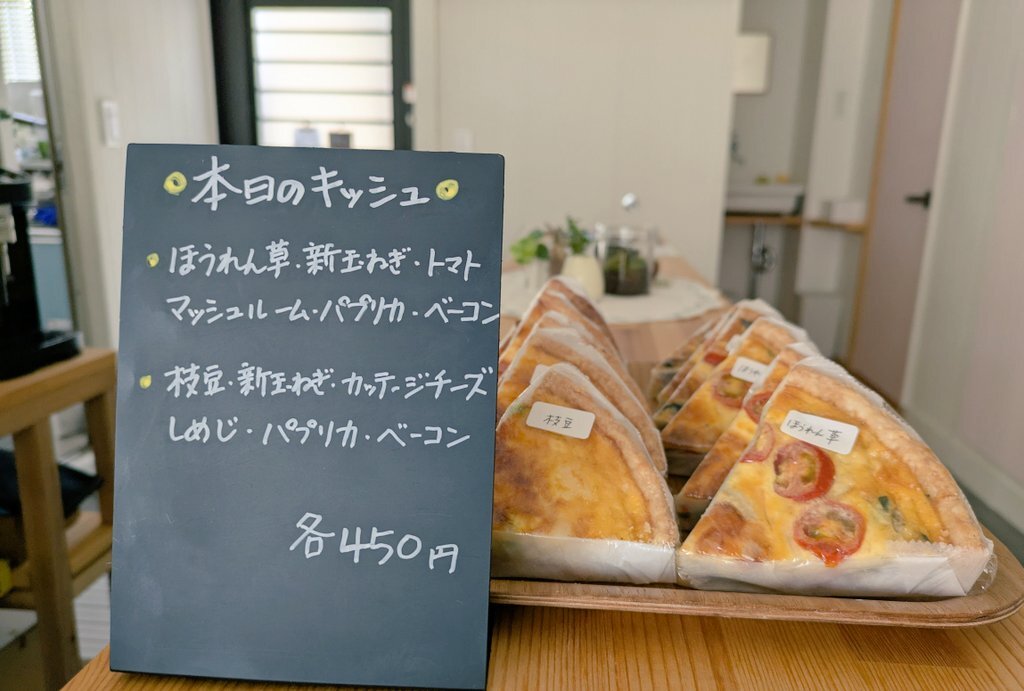 本日のキッシュ
ほうれん草・新玉ねぎ・トマト
マッシュルーム・パプリカ・ベーコン
枝豆・新玉ねぎ・カッテージチーズ
しめじ・パプリカ・ベーコン
各450円
枝豆
ほうれ
ほうれん草